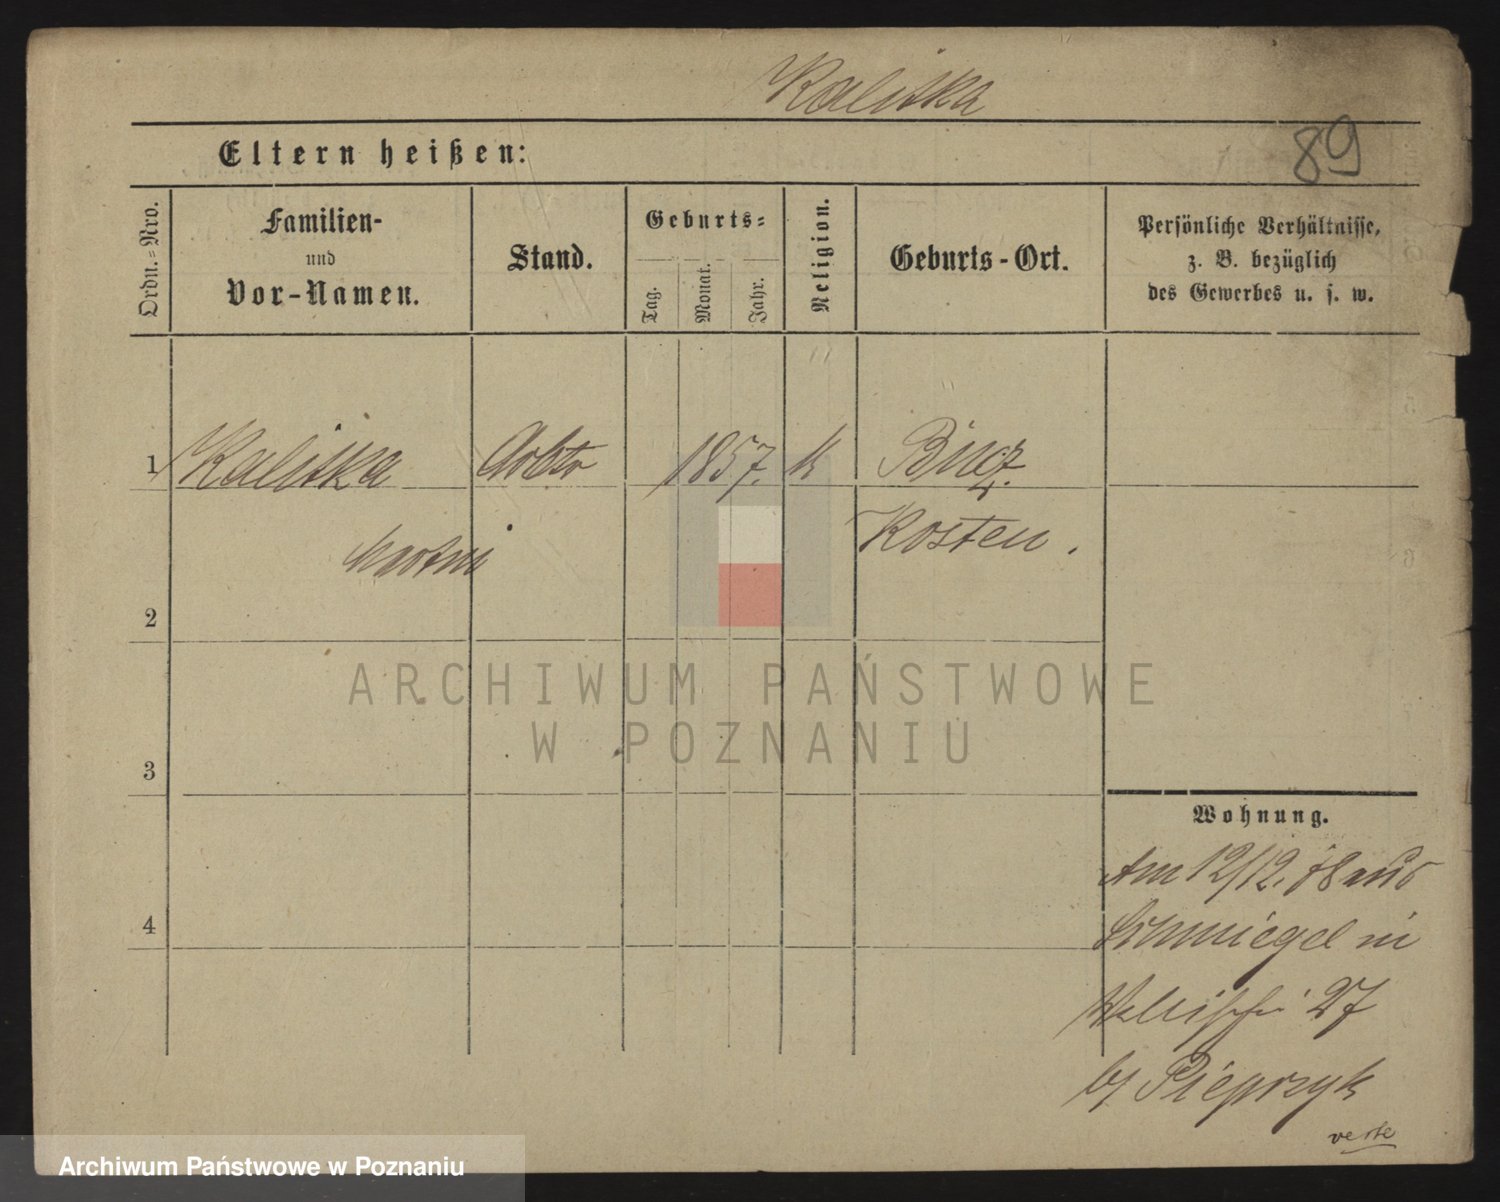 Kaliska
89
Eltern heißen:
Ordn.-Nro.
Familien-
und
Vor-Namen.
Stand.
Geburts-
Tag.
Monat.
Jahr.
Religion.
Geburts-Ort.
Persönliche Verhältnisse,
z. B. bezüglich
des Gewerbes u. s. w.
1 Kaliska Arbtr 1857. k
Kosten.
2
3
4
Wohnung.
Am 12/12. 78 aus
Schmiegel in
Wallischei 27
b/ Pieprzyk
verte
ARCHIWUM PAŃSTWOWE
W POZNANIU
Archiwum Państwowe w Poznaniu